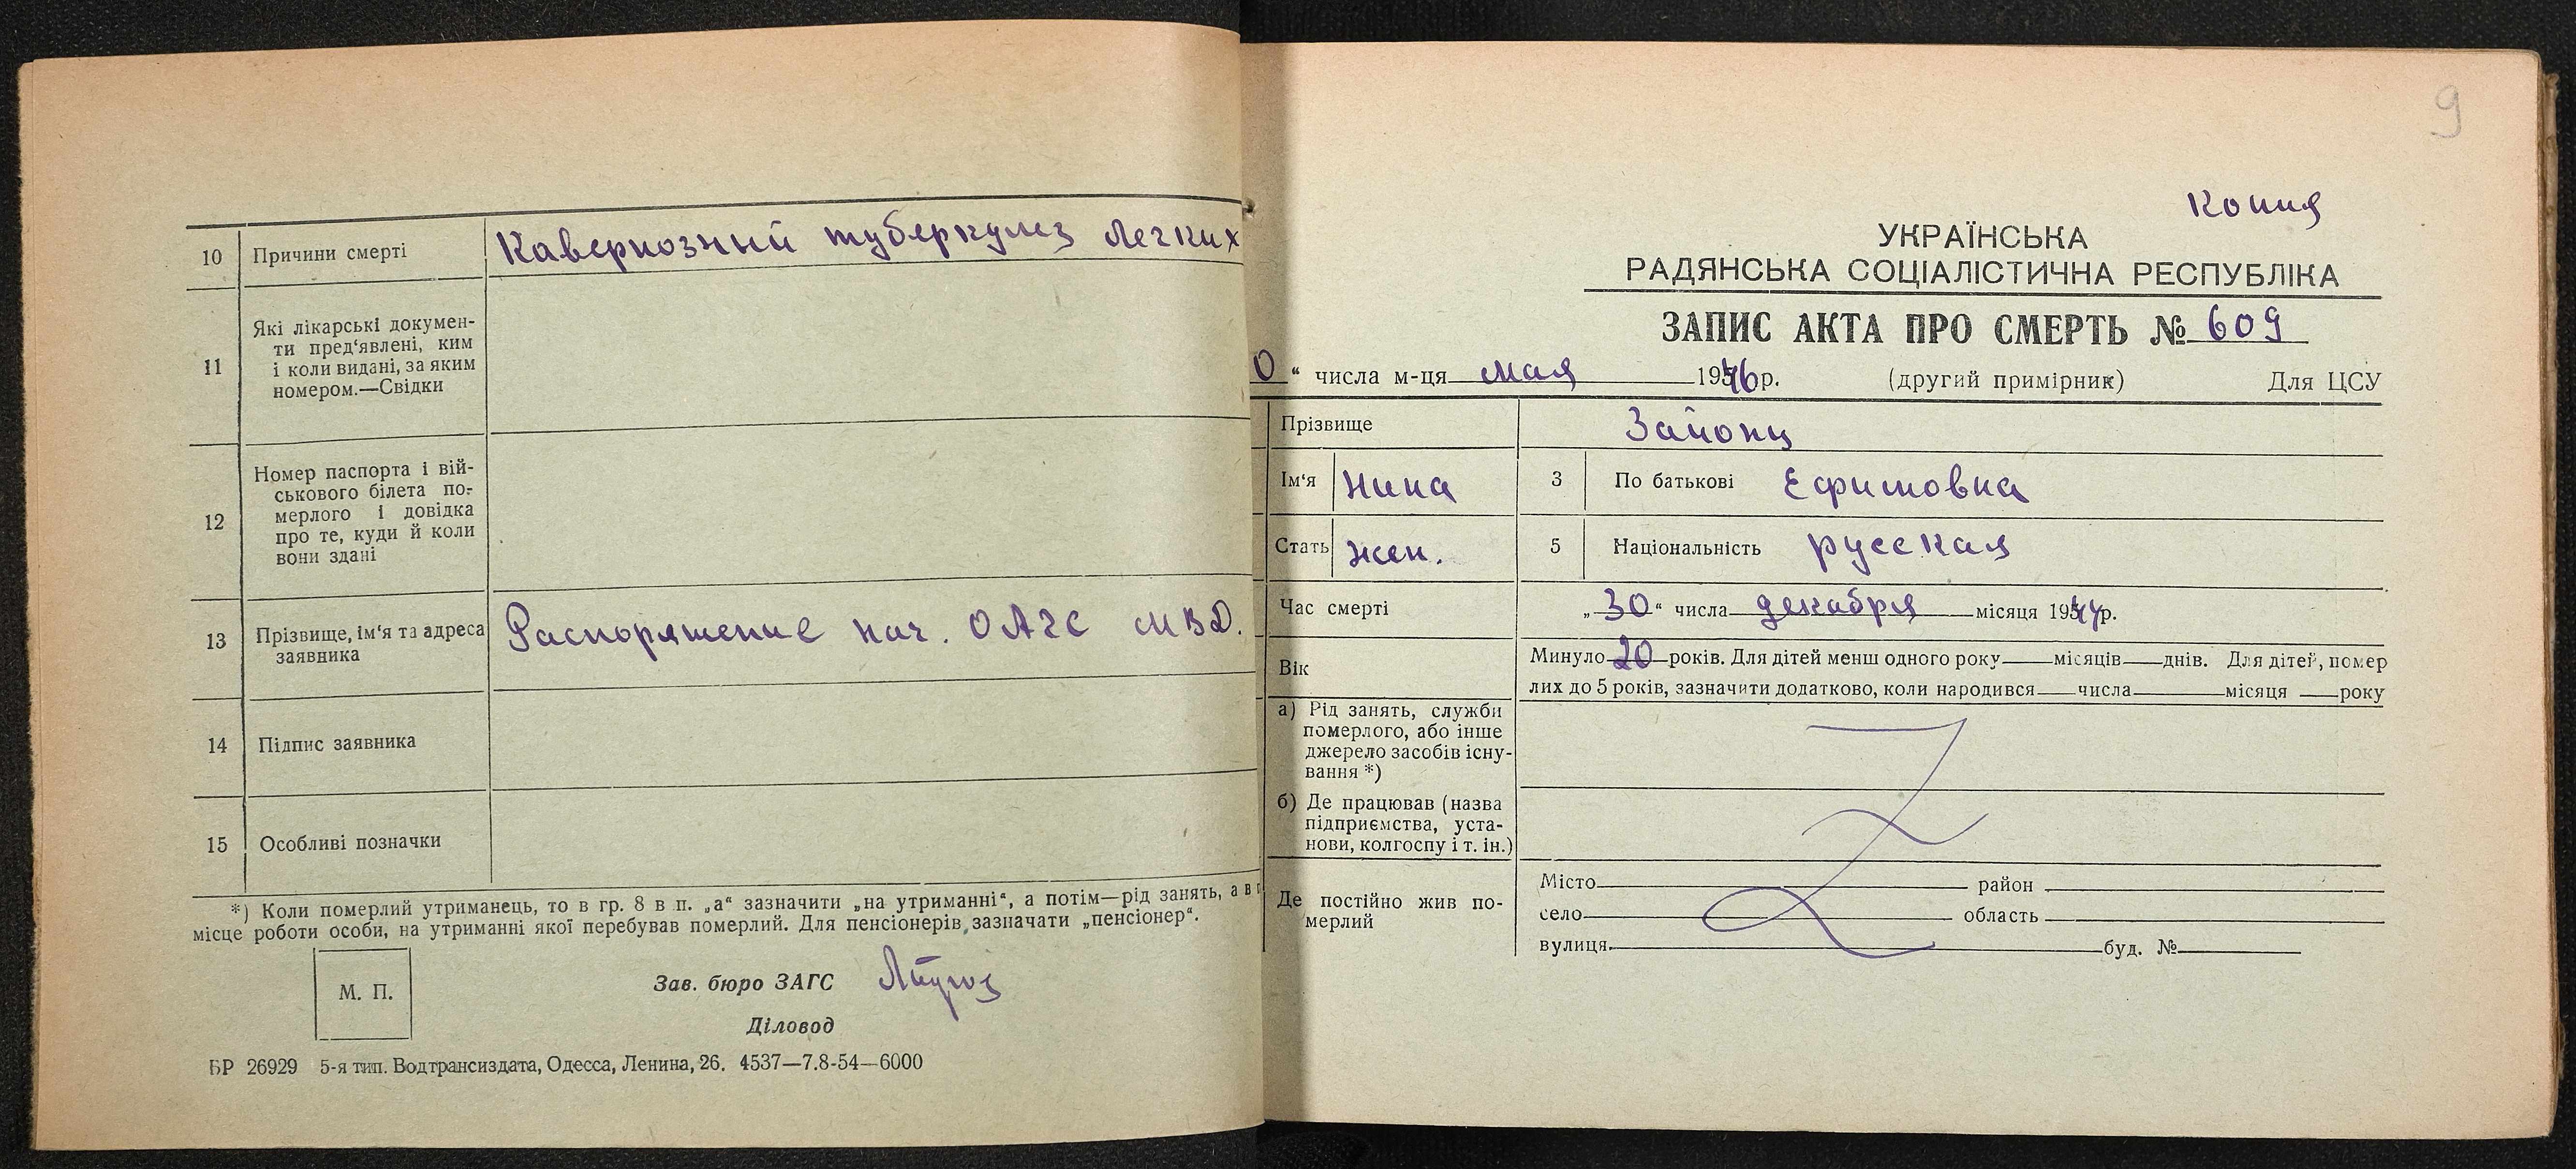 10 Причини смерті Кавернозный туберкулез легких
11 Які лікарські докумен-
ти пред'явлені, ким
і коли видані, за яким
номером.—Свідки
12 Номер паспорта і вій-
ськового білета по-
мерлого і довідка
про те, куди й коли
вони здані
13 Прізвище, ім'я та адреса Распоряжение нач. ОАГС МВД.
заявника
14 Підпис заявника
15 Особливі позначки
*) Коли померлий утриманець, то в гр. 8 в п. „а“ зазначити „на утриманні“, а потім—рід занять, а в п
місце роботи особи, на утриманні якої перебував померлий. Для пенсіонерів зазначати „пенсіонер“.
М. П.
Зав. бюро ЗАГС
Діловод
БР 26929 5-я тип. Водтрансиздата, Одесса, Ленина, 26. 4537—7.8-54—6000
9
Копия
УКРАЇНСЬКА
РАДЯНСЬКА СОЦІАЛІСТИЧНА РЕСПУБЛІКА
ЗАПИС АКТА ПРО СМЕРТЬ № 609
0 “ числа м-ця мая 1946 р. (другий примірник) Для ЦСУ
Прізвище Зайонц
Ім'я Нина 3 По батькові Ефимовна
Стать жен. 5 Національність русская
Час смерті „ 30 “ числа декабря місяця 1944 р.
Вік Минуло 20 років. Для дітей менш одного року місяців днів. Для дітей, помер
лих до 5 років, зазначити додатково, коли народився числа місяця року
а) Рід занять, служби
померлого, або інше
джерело засобів існу-
вання *)
б) Де працював (назва
підприємства, уста-
нови, колгоспу і т. ін.)
Де постійно жив по-
мерлий
Місто район
село область
вулиця буд. №